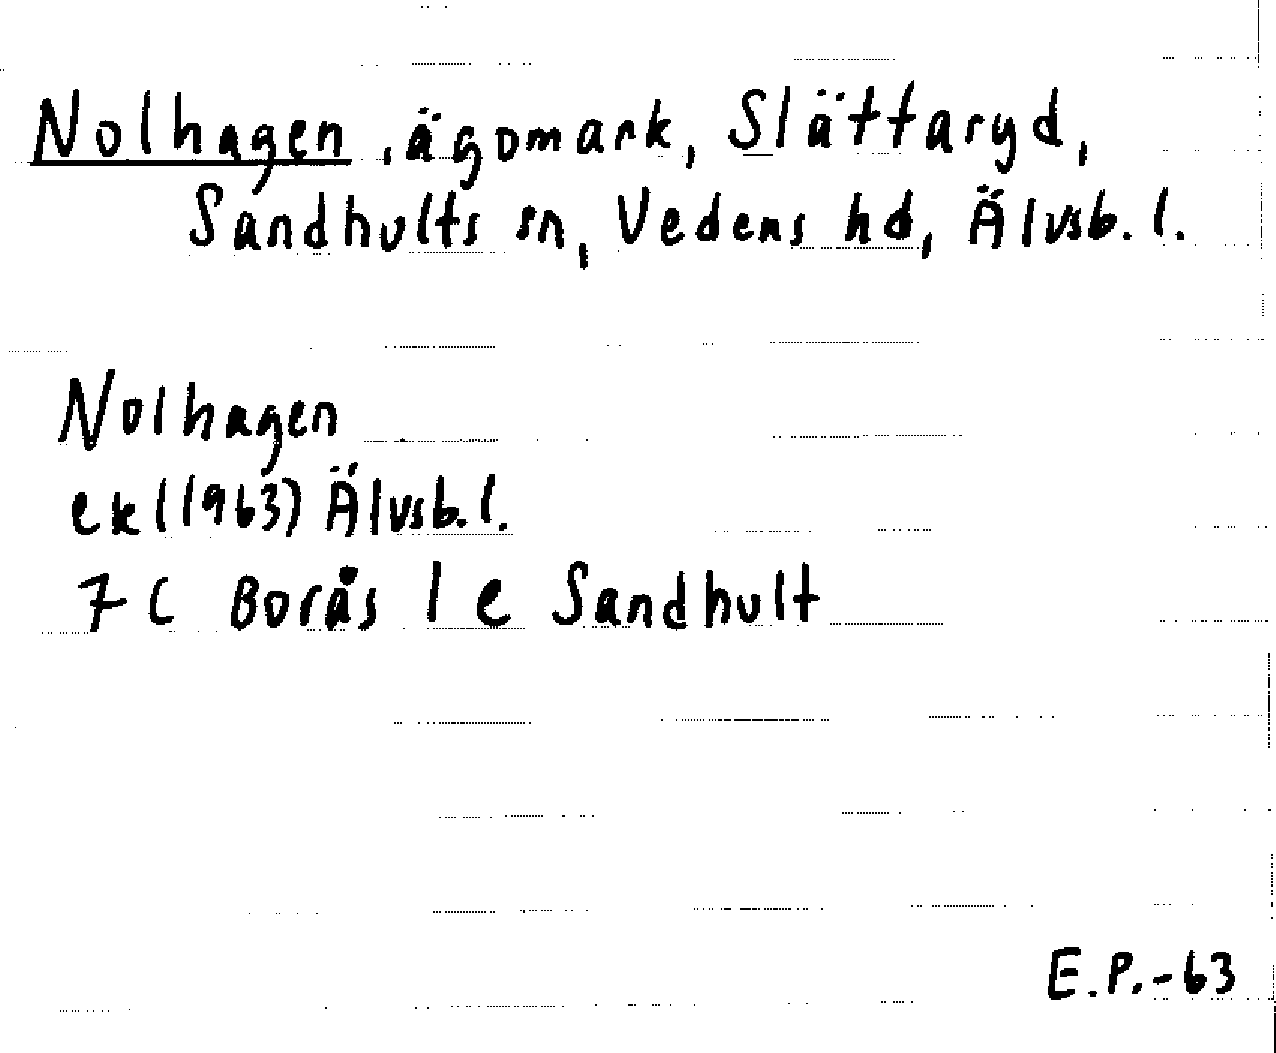 Nolhagen, ägomark, Slättaryd,
Sandhults sn, Vedens hd, Älvsb. l.
Nolhagen
ek (1963) Älvsb. l.
7 C Borås 1 e Sandhult
E.P.-63